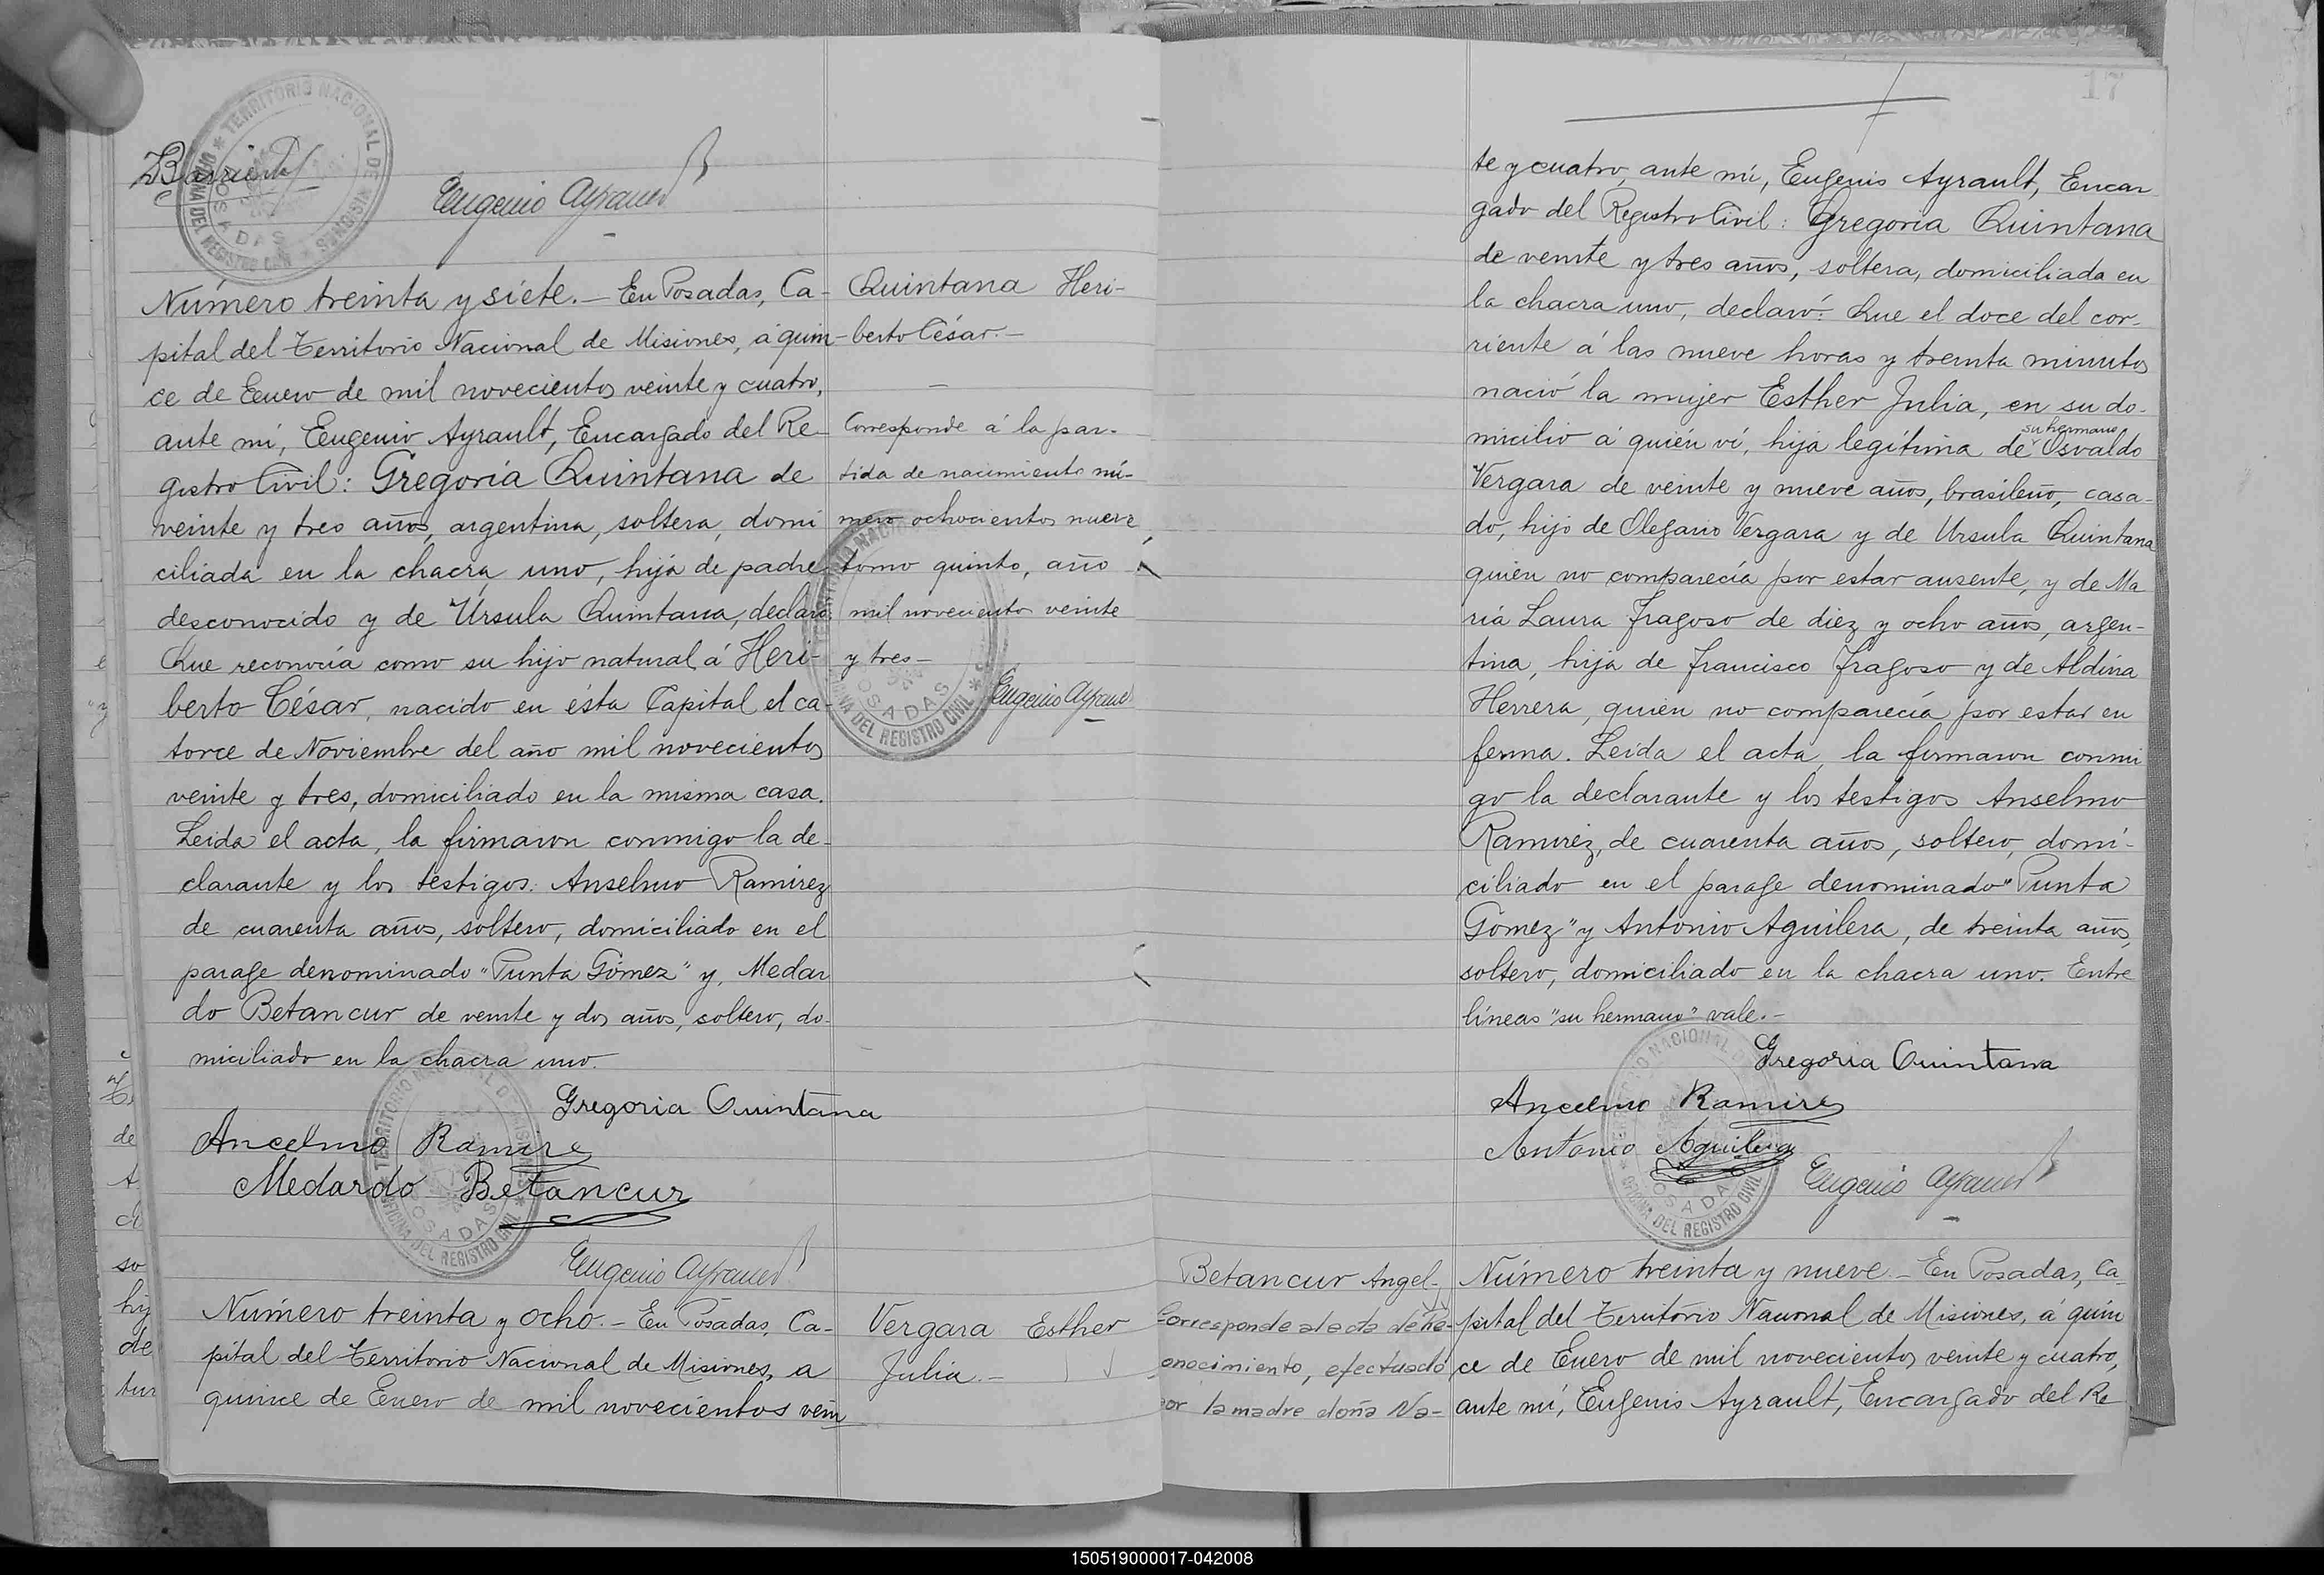 Barrientos
Eugenio Ayrault
Número treinta y siete.- En Posadas, Ca-
pital del Territorio Nacional de Misiones, á quin-
ce de Enero de mil novecientos veinte y cuatro,
ante mí, Eugenio Ayrault, Encargado del Re-
gistro Civil: Gregoria Quintana de
veinte y tres años, argentina, soltera, domi
ciliada en la chacra uno, hija de padre
desconocido y de Úrsula Quintana, declaró:
Que reconocía como su hijo natural á Heri-
berto César, nacido en ésta Capital el ca-
torce de Noviembre del año mil novecientos
veinte y tres, domiciliado en la misma casa.
Leida el acta, la firmaron conmigo la de-
clarante y los testigos: Anselmo Ramirez
de cuarenta años, soltero, domiciliado en el
parage denominado "Punta Gómez" y, Medar
do Betancur de veinte y dos años, soltero, do-
miciliado en la chacra uno.
Gregoria Quintana
Ancelmo Ramires
Medardo Betancur
Eugenio Ayrault
Quintana Heri-
berto César.-
Corresponde á la par-
tida de nacimiento nú-
mero ochocientos nueve,
tomo quinto, año
mil novecientos veinte
y tres-
Eugenio Ayrault
TERRITORIO NACIONAL DE MISIONES
OFICINA DEL REGISTRO CIVIL
POSADAS
Número treinta y ocho.- En Posadas, Ca-
pital del Territorio Nacional de Misiones, a
quince de Enero de mil novecientos vein
Vergara Esther
Julia.-
17
te y cuatro, ante mí, Eugenio Ayrault, Encar
gado del Registro Civil: Gregoria Quintana
de veinte y tres años, soltera, domiciliada en
la chacra uno, declaró: Que el doce del cor-
riente á las nueve horas y treinta minutos
nació la mujer Esther Julia, en su do-
micilio á quién ví, hija legítima de su hermano Osvaldo
Vergara de veinte y nueve años, brasileño, casa-
do, hijo de Olegario Vergara y de Ursula Quintana
quién no comparecía por estar ausente, y de Ma
ría Laura Fragoso de diez y ocho años, argen-
tina, hija de Francisco Fragoso y de Aldina
Herrera, quién no comparecía por estar en
ferma. Leida el acta, la firmaron conmi
go la declarante y los testigos Anselmo
Ramirez, de cuarenta años, soltero, domi-
ciliado en el parage denominado "Punta
Gómez" y Antonio Aguilera, de treinta años,
soltero, domiciliado en la chacra uno. Entre
líneas "su hermano" vale.-
Gregoria Quintana
Ancelmo Ramires
Antonio Aguilera
Eugenio Ayrault
Betancur Angel.
Corresponde al acta de re-
conocimiento, efectuado
por la madre doña Na-
Número treinta y nueve - En Posadas, Ca
pital del Territorio Nacional de Misiones, á quin
ce de Enero de mil novecientos veinte y cuatro,
ante mí, Eugenio Ayrault, Encargado del Re
150519000017-042008